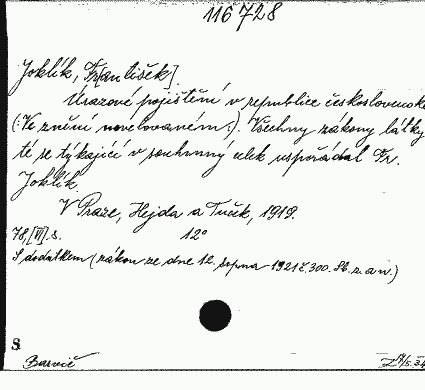 116728
Joklík, Fr[antišek].
Úrazové pojištění v republice československé
(:Ve znění novelovaném:). Všechny zákony látky
té se týkající v souhrnný celek uspořádal Fr.
Joklík.
V Praze, Hejda a Tuček, 1919.
78,[VI] s. 12°
S dodatkem (zákon ze dne 12. srpna 1921 č. 300. Sb. z. a n.)
S
Barvič